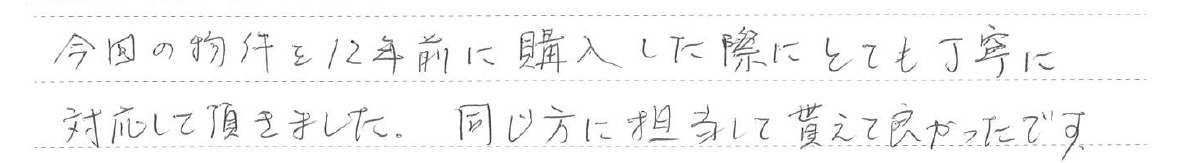 今回の物件を12年前に購入した際にとても丁寧に
対応して頂きました。 同じ方に担当して貰えて良かったです。